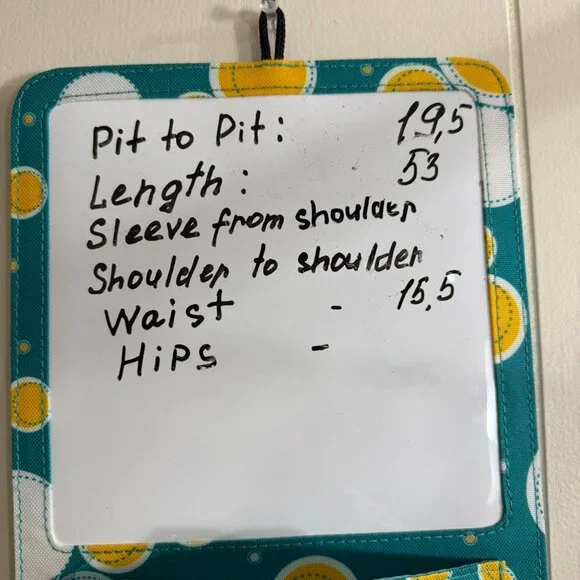 Pit to Pit: 19,5
Length: 53
Sleeve from shoulder
Shoulder to shoulder
Waist - 15,5
Hips -